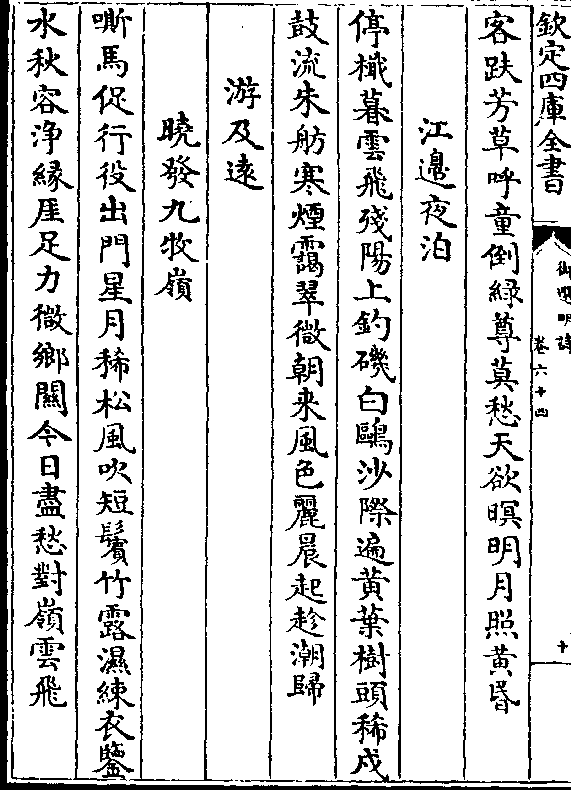 欽定四庫全書
御選明詩
卷六十四
十
客趺芳草呼童倒緑尊莫愁天欲暝明月照黄昏
江邊夜泊
停檝暮雲飛殘陽上釣磯白鷗沙際遍黄葉樹頭稀戍
鼓流朱舫寒煙靄翠微朝来風色麗晨起趁潮歸
游及遠
曉發九牧嶺
嘶馬促行役出門星月稀松風吹短鬢竹露濕練衣鑒
水秋容浄緣厓足力微鄉關今日盡愁對嶺雲飛